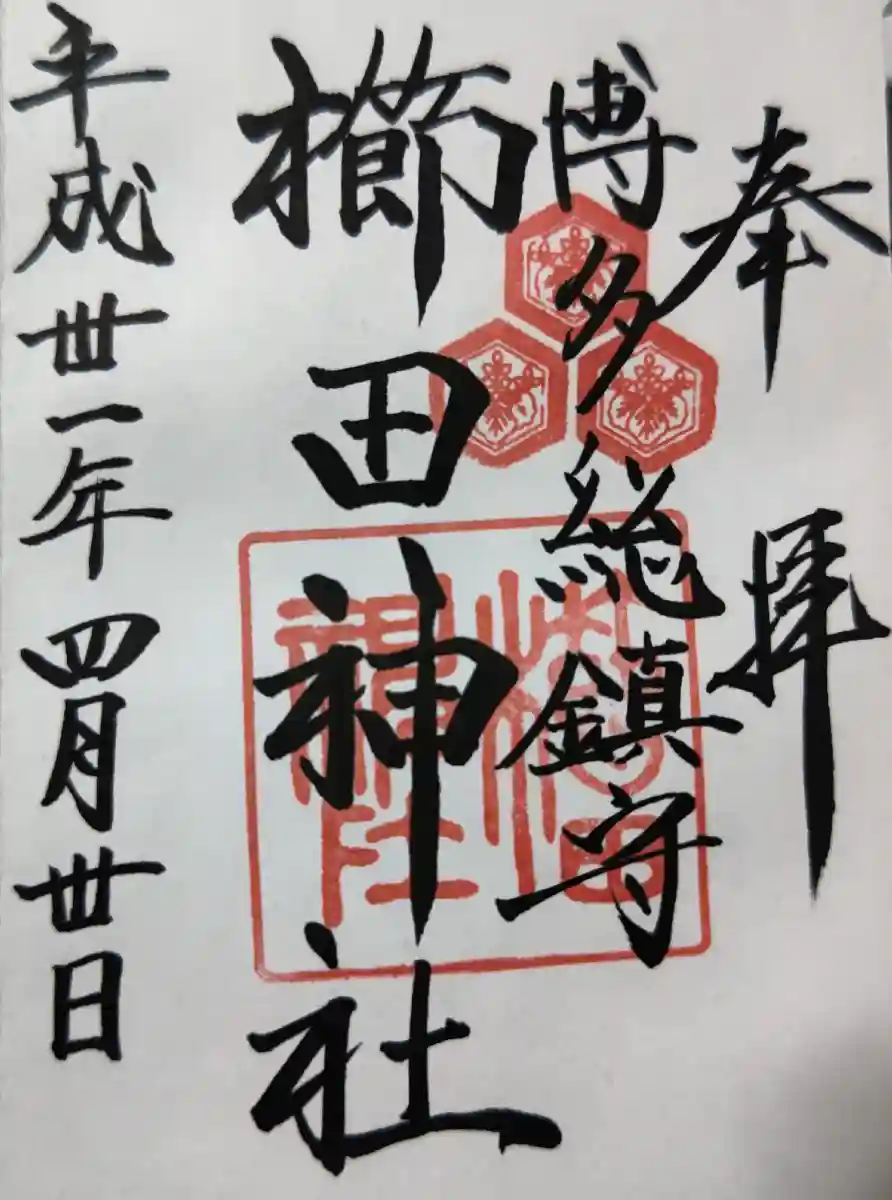 奉拝
博多総鎮守
櫛田神社
平成丗一年四月丗日
櫛田
神社